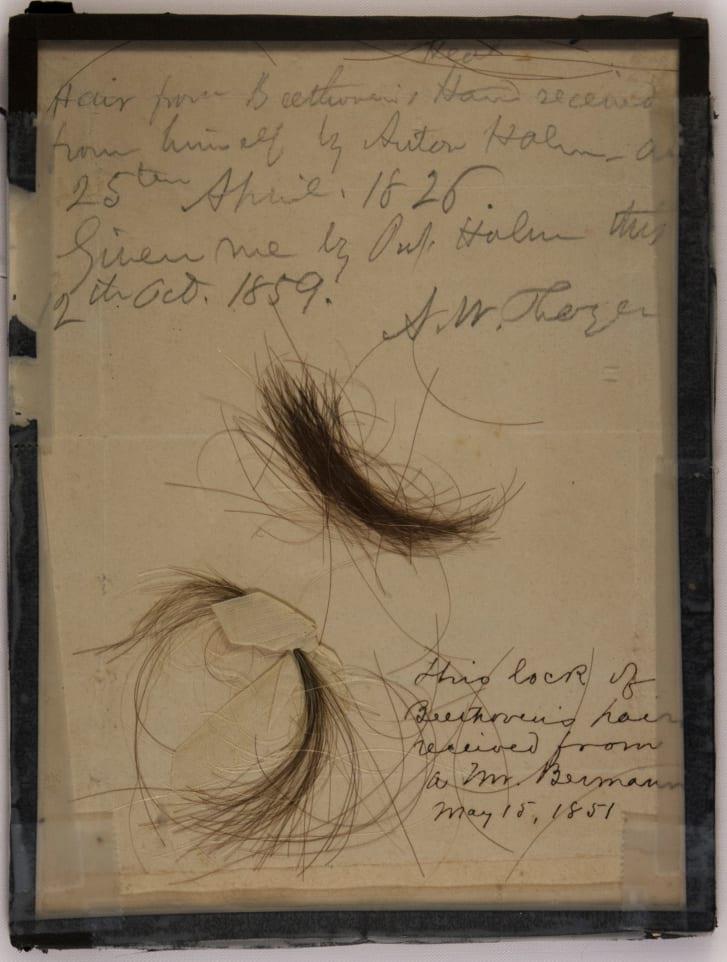 Head
Hair from Beethoven's Hand received
from himself by Anton Halm, on
25ten April. 1826
Given me by Prof. Halm this
12th Oct. 1859.
A. W. Thayer
This lock of
Beethoven's hair
received from
a Mr. Bermann
May 15, 1851